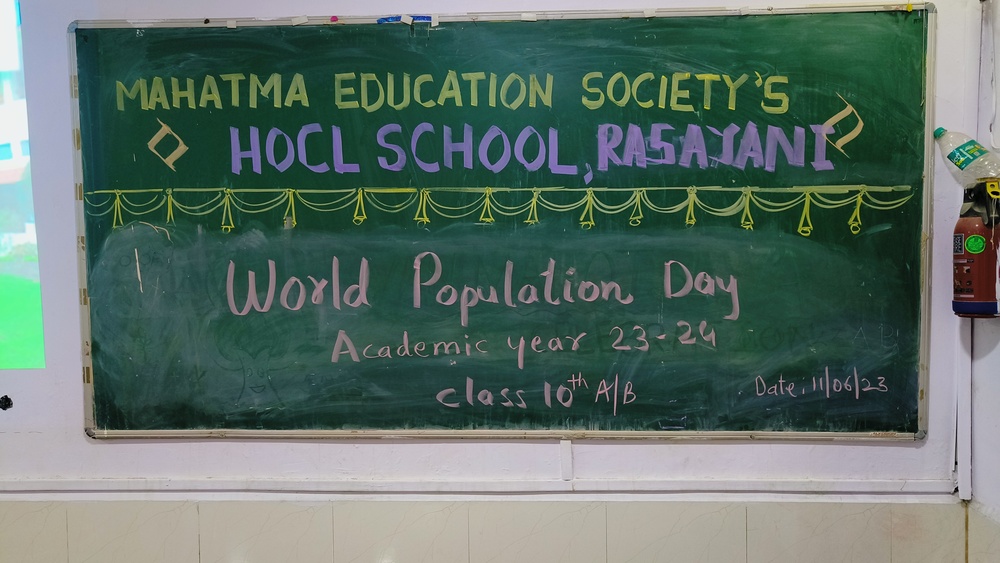 MAHATMA EDUCATION SOCIETY'S
HOCL SCHOOL, RASAYANI
World Population Day
Academic year 23-24
class 10th A/B
Date: 11/06/23